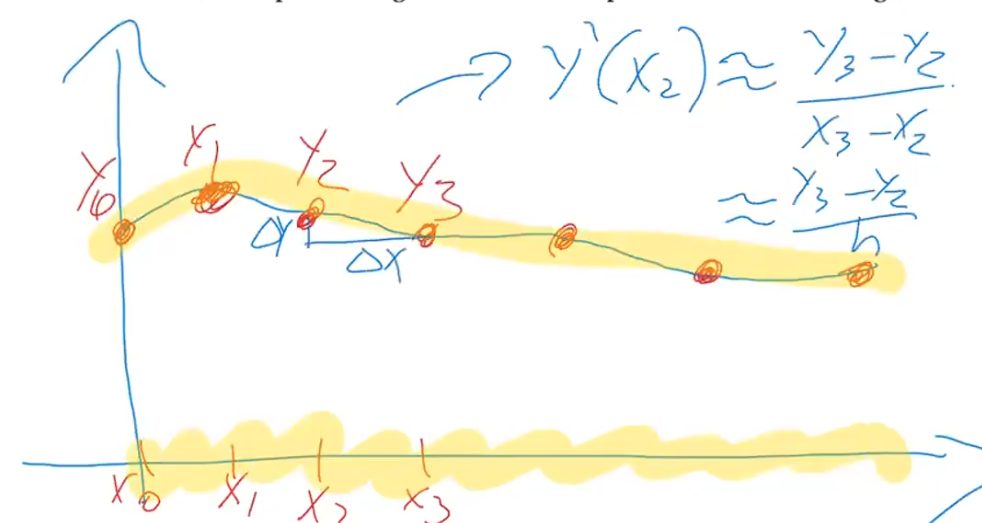 Y'(X₂) ≈ Y₃-Y₂ / X₃-X₂
≈ Y₃-Y₂ / h
Y₀ Y₁ Y₂ Y₃
ΔY
ΔX
X₀ X₁ X₂ X₃